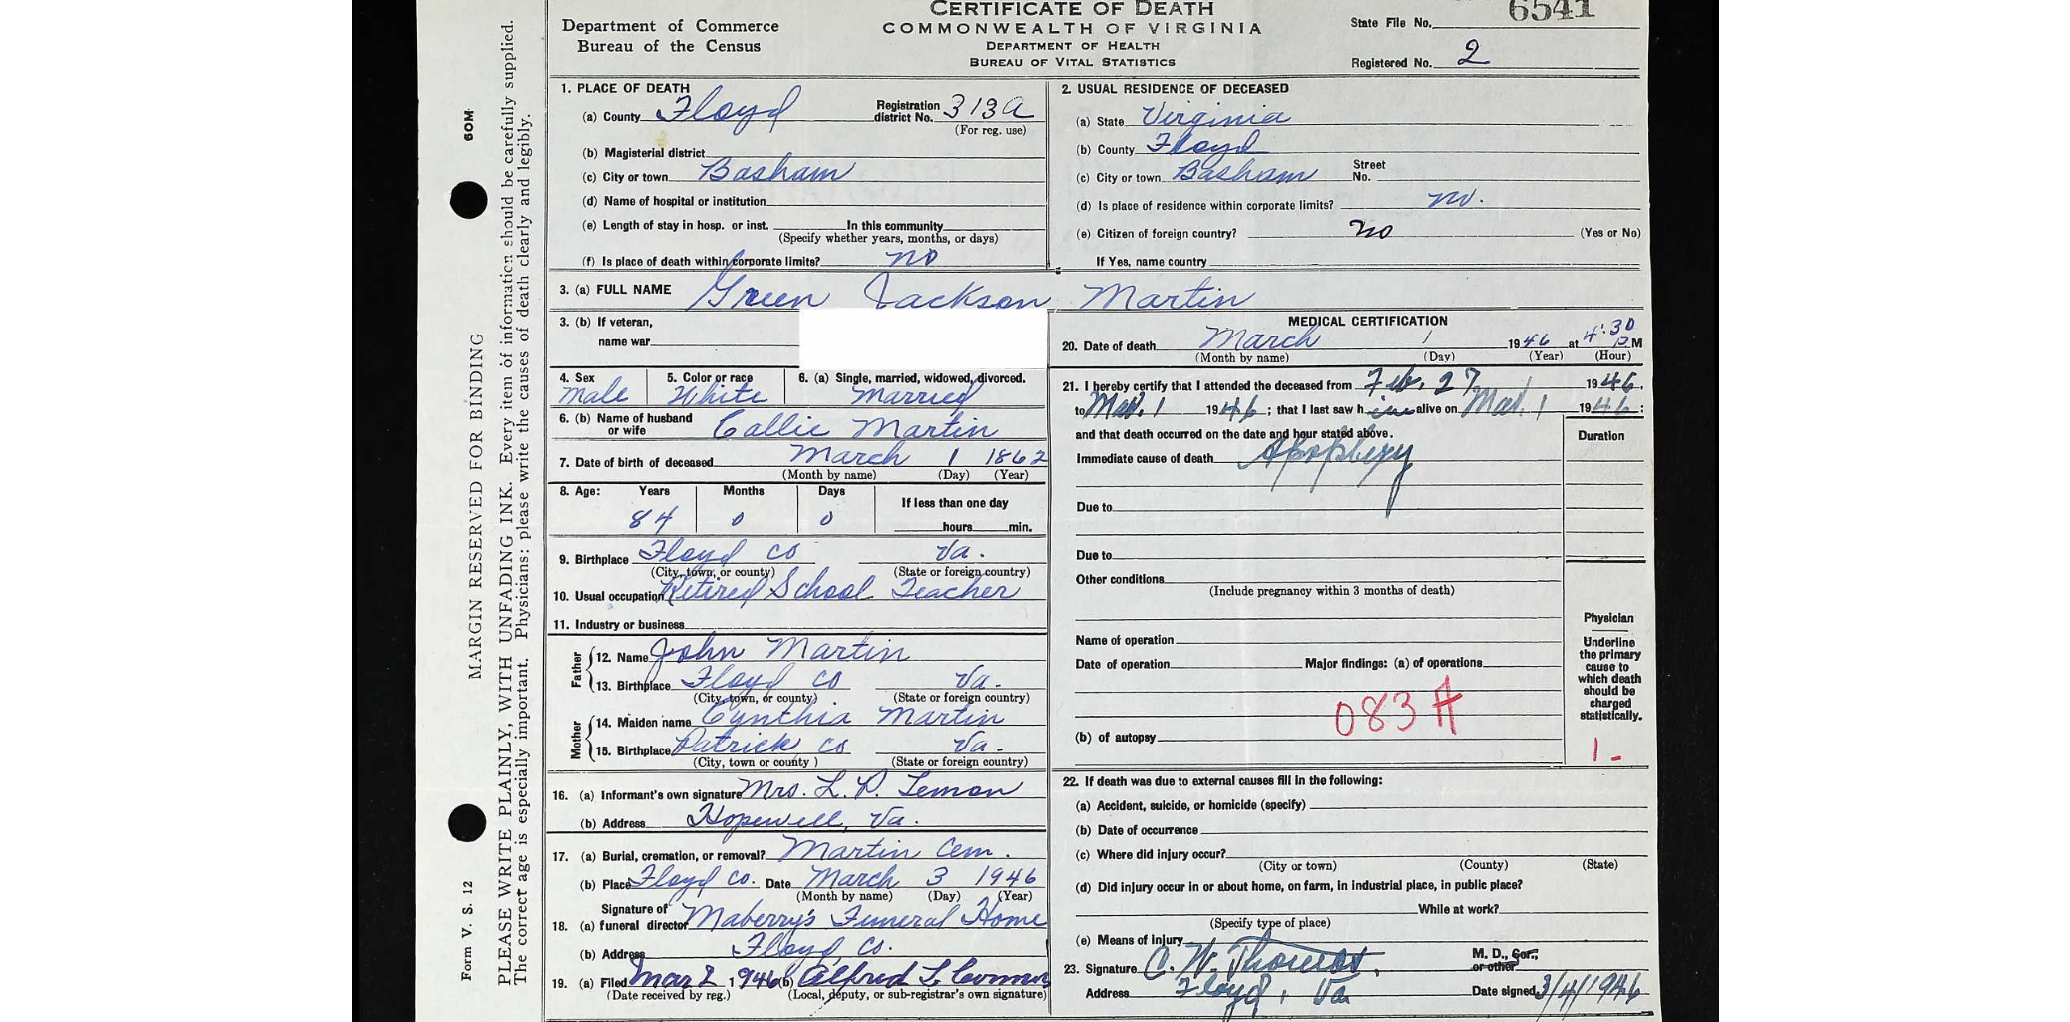 CERTIFICATE OF DEATH
COMMONWEALTH OF VIRGINIA
DEPARTMENT OF HEALTH
BUREAU OF VITAL STATISTICS
Department of Commerce
Bureau of the Census
State File No. 6541
Registered No. 2
60M
MARGIN RESERVED FOR BINDING
Form V. S. 12
PLEASE WRITE PLAINLY, WITH UNFADING INK. Every item of information should be carefully supplied.
The correct age is especially important. Physicians: please write the causes of death clearly and legibly.
1. PLACE OF DEATH
(a) County Floyd Registration district No. 313A
(For reg. use)
(b) Magisterial district
(c) City or town Basham
(d) Name of hospital or institution
(e) Length of stay in hosp. or inst. In this community
(Specify whether years, months, or days)
(f) Is place of death within corporate limits? no
2. USUAL RESIDENCE OF DECEASED
(a) State Virginia
(b) County Floyd
(c) City or town Basham Street No.
(d) Is place of residence within corporate limits? no.
(e) Citizen of foreign country? no (Yes or No)
If Yes, name country
3. (a) FULL NAME Green Jackson Martin
3. (b) If veteran,
name war
4. Sex 5. Color or race 6. (a) Single, married, widowed, divorced.
Male White Married
6. (b) Name of husband or wife Callie Martin
7. Date of birth of deceased March 1 1862
(Month by name) (Day) (Year)
8. Age: Years Months Days If less than one day
84 0 0 hours min.
9. Birthplace Floyd Co Va.
(City, town, or county) (State or foreign country)
10. Usual occupation Retired School Teacher
11. Industry or business
Father
12. Name John Martin
13. Birthplace Floyd Co Va.
(City, town, or county) (State or foreign country)
Mother
14. Maiden name Cynthia Martin
15. Birthplace Patrick Co Va.
(City, town or county ) (State or foreign country)
16. (a) Informant's own signature Mrs. L. P. Lemon
(b) Address Hopewell, Va.
17. (a) Burial, cremation, or removal? Martin Cem.
(b) Place Floyd Co. Date March 3 1946
(Month by name) (Day) (Year)
18. (a) Signature of funeral director Maberry's Funeral Home
(b) Address Floyd Co.
19. (a) Filed Mar 2 1946 (b) Alfred L.
(Date received by reg.) (Local, deputy, or sub-registrar's own signature)
MEDICAL CERTIFICATION
20. Date of death March 1 1946 at 4:30 P M
(Month by name) (Day) (Year) (Hour)
21. I hereby certify that I attended the deceased from Feb. 27 1946,
to Mar. 1 1946; that I last saw him alive on Mar. 1 1946;
and that death occurred on the date and hour stated above. Duration
Immediate cause of death Apoplexy
Due to
Due to
Other conditions
(Include pregnancy within 3 months of death)
Name of operation
Date of operation Major findings: (a) of operations
083A
(b) of autopsy
Physician
Underline
the primary
cause to
which death
should be
charged
statistically.
1-
22. If death was due to external causes fill in the following:
(a) Accident, suicide, or homicide (specify)
(b) Date of occurrence
(c) Where did injury occur?
(City or town) (County) (State)
(d) Did injury occur in or about home, on farm, in industrial place, in public place?
While at work?
(Specify type of place)
(e) Means of injury
23. Signature C. W. Thomas, M. D., Cor., or other
Address Floyd, Va Date signed 3/4/1946